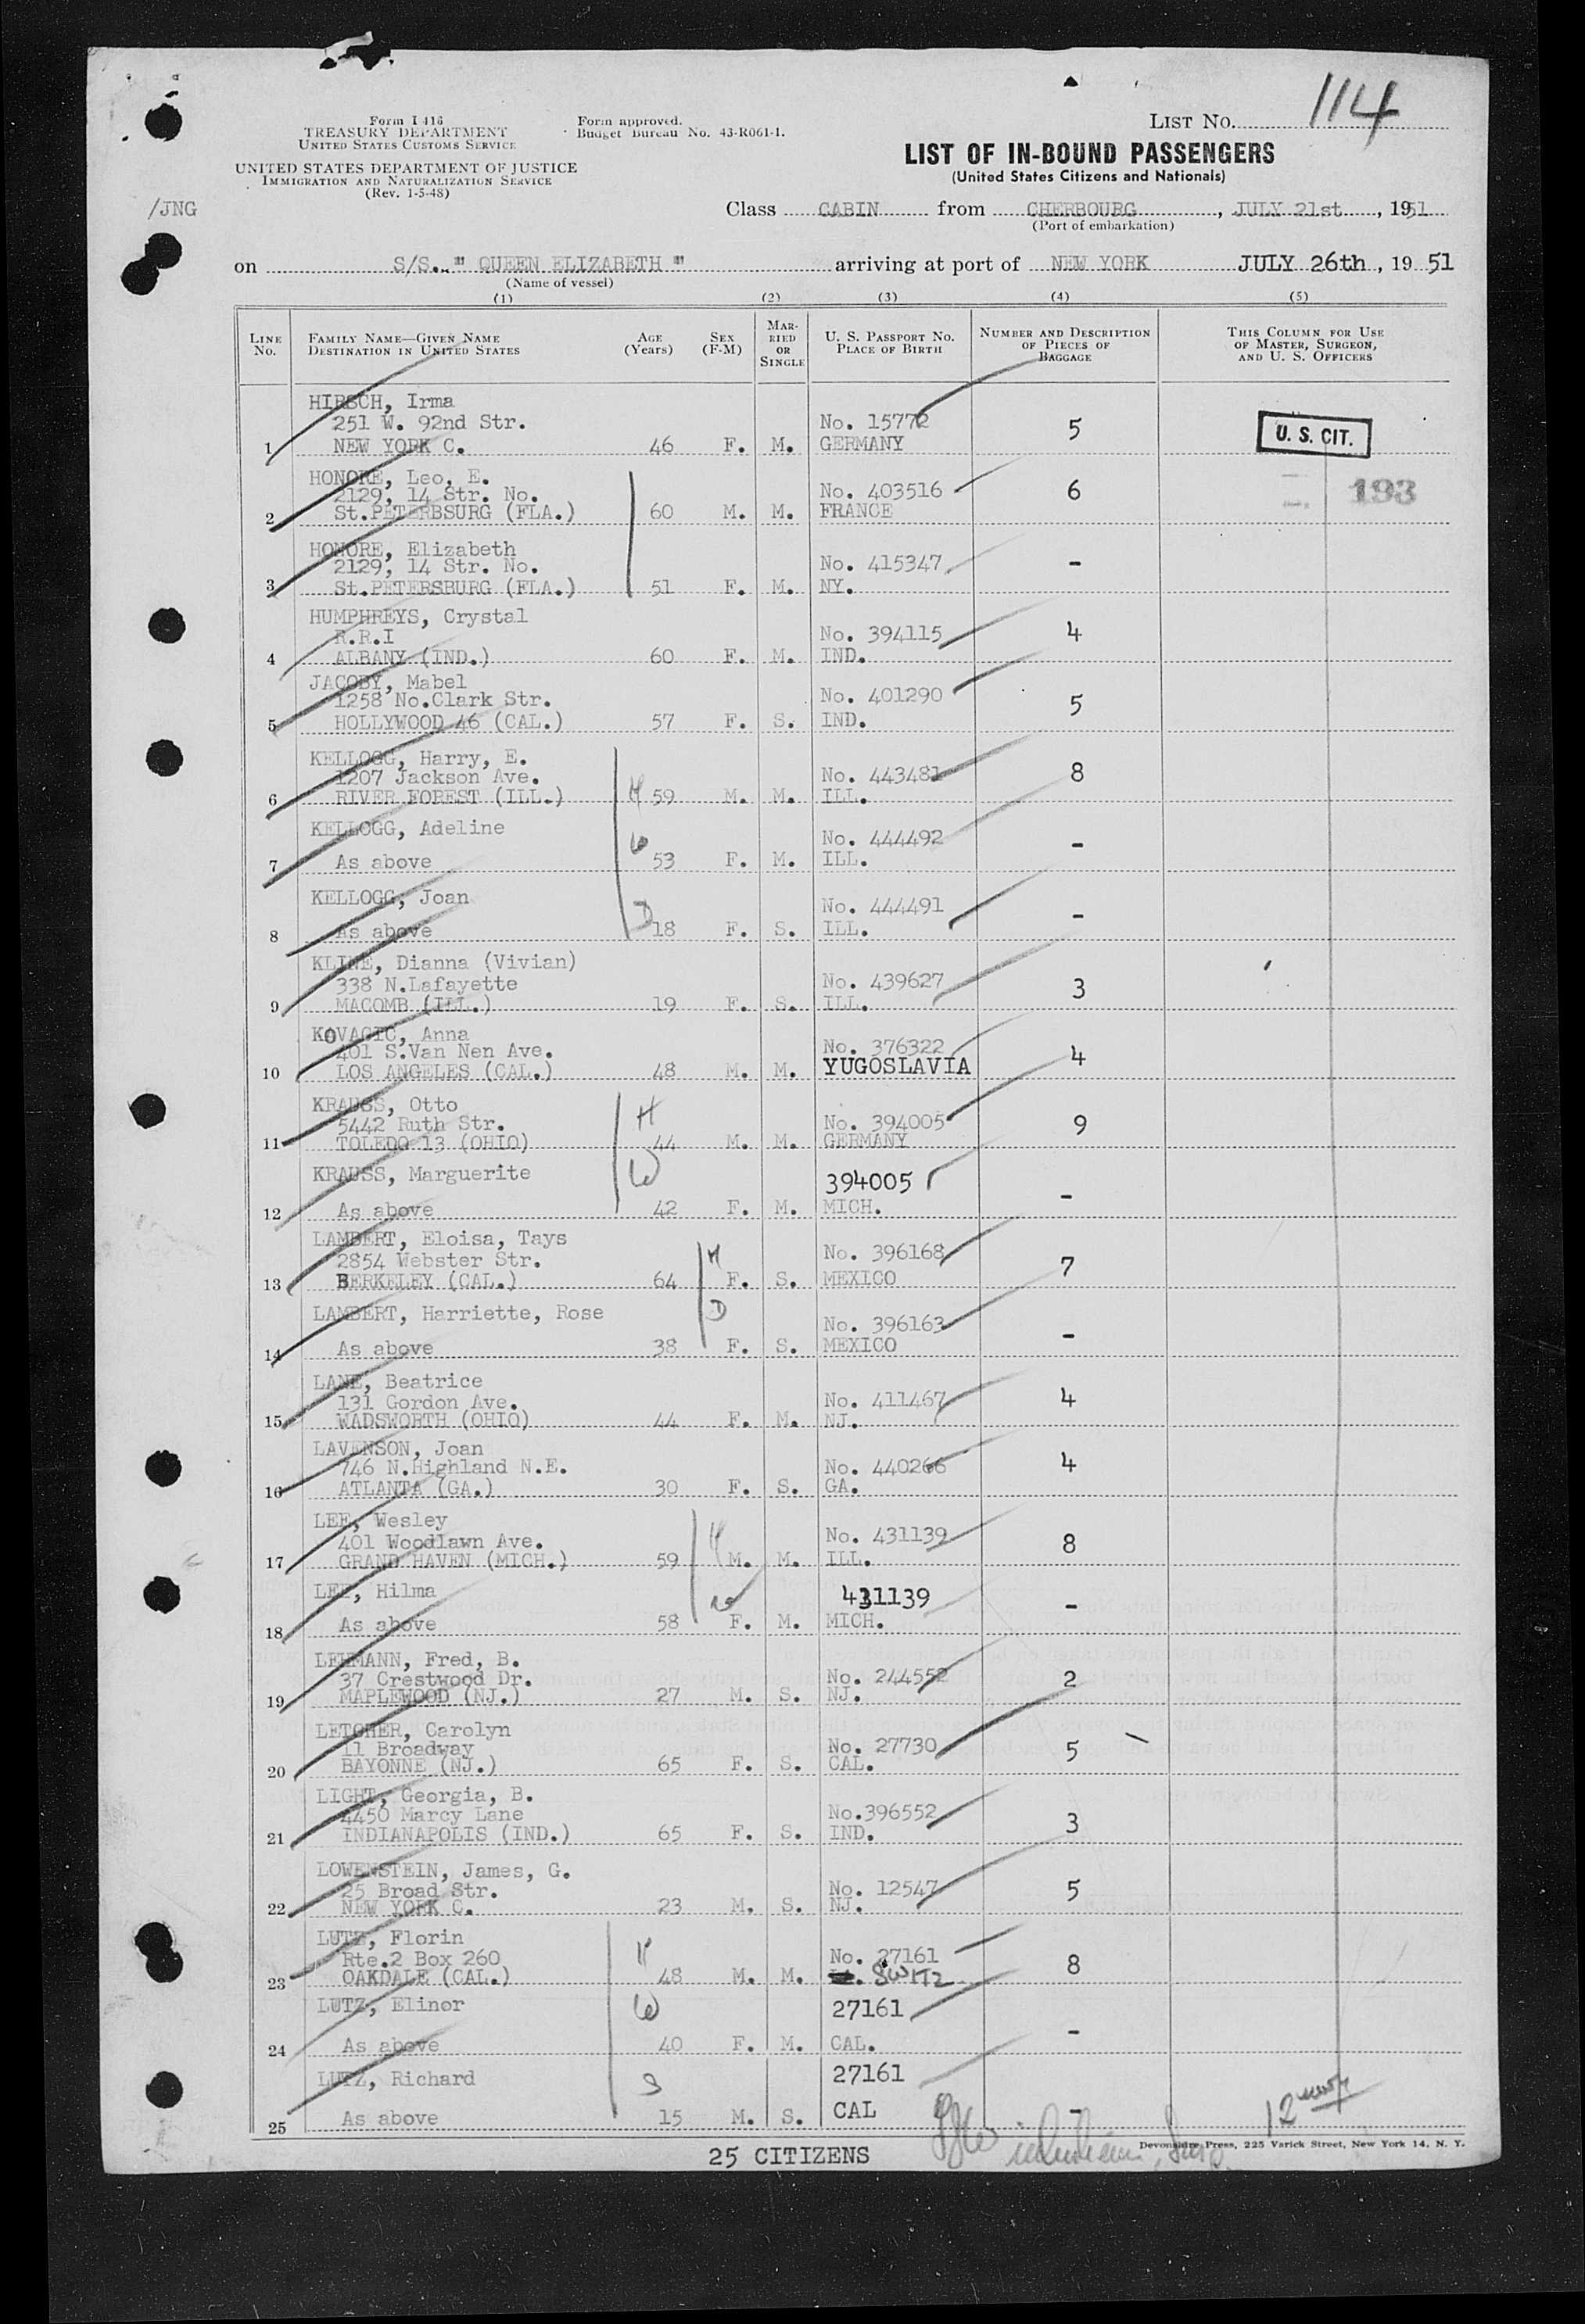 114
Form I 418
TREASURY DEPARTMENT
UNITED STATES CUSTOMS SERVICE
Form approved.
Budget Bureau No. 43-R061-1.
LIST No.
UNITED STATES DEPARTMENT OF JUSTICE
IMMIGRATION AND NATURALIZATION SERVICE
(Rev. 1-5-48)
LIST OF IN-BOUND PASSENGERS
(United States Citizens and Nationals)
/JNG
Class CABIN from CHERBOURG, JULY 21st, 1951
(Port of embarkation)
on S/S. " QUEEN ELIZABETH " arriving at port of NEW YORK JULY 26th, 19 51
(Name of vessel)
(1) (2) (3) (4) (5)
LINE No. FAMILY NAME—GIVEN NAME DESTINATION IN UNITED STATES AGE (Years) SEX (F-M) MARRIED OR SINGLE U. S. PASSPORT No. PLACE OF BIRTH NUMBER AND DESCRIPTION OF PIECES OF BAGGAGE THIS COLUMN FOR USE OF MASTER, SURGEON, AND U. S. OFFICERS
HIRSCH, Irma
251 W. 92nd Str. No. 15772 5 U. S. CIT.
1 NEW YORK C. 46 F. M. GERMANY
HONORE, Leo, E.
2129, 14 Str. No. No. 403516 6 193
2 St.PETERBSURG (FLA.) 60 M. M. FRANCE
HONORE, Elizabeth
2129, 14 Str. No. No. 415347 -
3 St.PETERSBURG (FLA.) 51 F. M. NY.
HUMPHREYS, Crystal
R.R.I No. 394115 4
4 ALBANY (IND.) 60 F. M. IND.
JACOBY, Mabel
1258 No.Clark Str. No. 401290 5
5 HOLLYWOOD 46 (CAL.) 57 F. S. IND.
KELLOGG, Harry, E.
1207 Jackson Ave. No. 443481 8
6 RIVER FOREST (ILL.) H 59 M. M. ILL.
KELLOGG, Adeline W No. 444492 -
7 As above 53 F. M. ILL.
KELLOGG, Joan D No. 444491 -
8 As above 18 F. S. ILL.
KLINE, Dianna (Vivian)
338 N.Lafayette No. 439627 3
9 MACOMB (ILL.) 19 F. S. ILL.
KOVACIC, Anna
401 S.Van Nen Ave. No. 376322 4
10 LOS ANGELES (CAL.) 48 M. M. YUGOSLAVIA
KRAUSS, Otto H
5442 Ruth Str. No. 394005 9
11 TOLEDO 13 (OHIO) 44 M. M. GERMANY
KRAUSS, Marguerite W 394005 -
12 As above 42 F. M. MICH.
LAMBERT, Eloisa, Tays
2854 Webster Str. M No. 396168 7
13 BERKELEY (CAL.) 64 F. S. MEXICO
LAMBERT, Harriette, Rose D No. 396163 -
14 As above 38 F. S. MEXICO
LANE, Beatrice
131 Gordon Ave. No. 411467 4
15 WADSWORTH (OHIO) 44 F. M. NJ.
LAVENSON, Joan
746 N.Highland N.E. No. 440266 4
16 ATLANTA (GA.) 30 F. S. GA.
LEE, Wesley
401 Woodlawn Ave. H No. 431139 8
17 GRAND HAVEN (MICH.) 59 M. M. ILL.
LEE, Hilma W 431139 -
18 As above 58 F. M. MICH.
LEHMANN, Fred, B.
37 Crestwood Dr. No. 244552 2
19 MAPLEWOOD (NJ.) 27 M. S. NJ.
LETCHER, Carolyn
11 Broadway No. 27730 5
20 BAYONNE (NJ.) 65 F. S. CAL.
LIGHT, Georgia, B.
4450 Marcy Lane No.396552 3
21 INDIANAPOLIS (IND.) 65 F. S. IND.
LOWENSTEIN, James, G.
25 Broad Str. No. 12547 5
22 NEW YORK C. 23 M. S. NJ.
LUTZ, Florin H
Rte.2 Box 260 No. 27161 8
23 OAKDALE (CAL.) 48 M. M. SWITZ
LUTZ, Elinor W 27161 -
24 As above 40 F. M. CAL.
LUTZ, Richard S 27161
25 As above 15 M. S. CAL -
25 CITIZENS
Devonshire Press, 225 Varick Street, New York 14, N. Y.